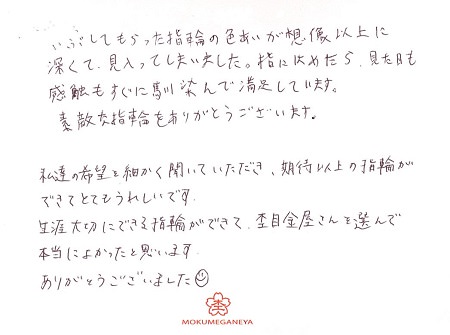 いぶしてもらった指輪の色あいが想像以上に
深くて、見入ってしまいました。指にはめたら、見た目も
感触もすぐに馴染んで満足しています。
素敵な指輪をありがとうございます。
私達の希望を細かく聞いていただき、期待以上の指輪が
できてとてもうれしいです。
生涯大切にできる指輪ができて、杢目金屋さんを選んで
本当によかったと思います。
ありがとうございました☺
杢
MOKUMEGANEYA